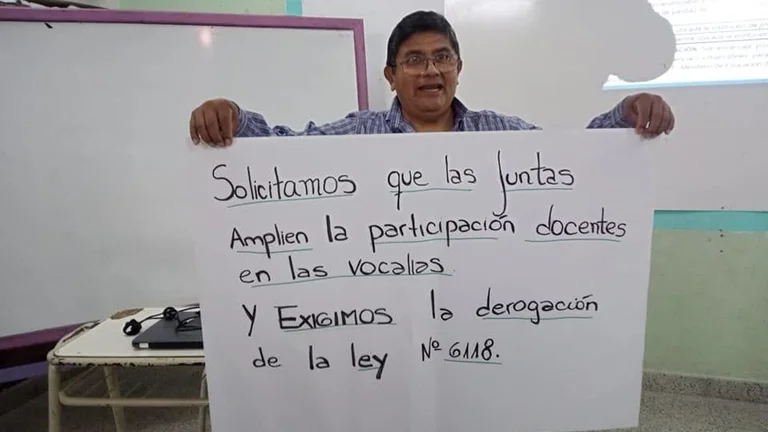 Solicitamos que las Juntas
Amplien la participación docentes
en las vocalias
Y EXIGIMOS la derogación
de la ley Nº 6118.